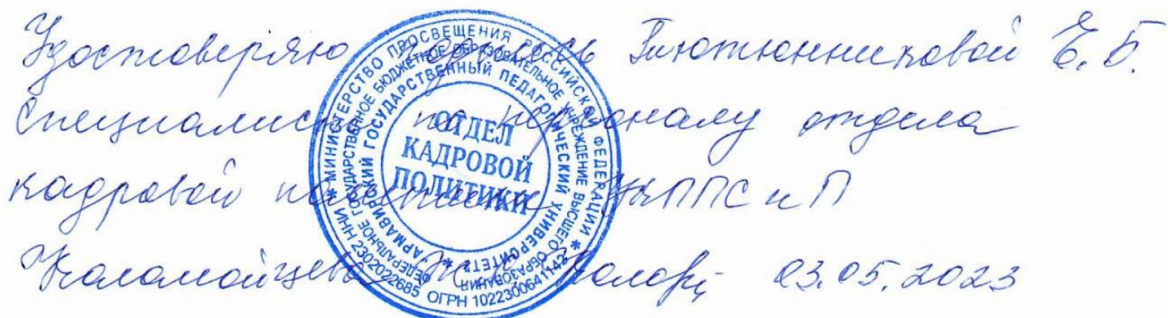 Удостоверяю подпись Плютенниковой Е. Б.
Специалист по персоналу отдела
кадровой политики УКППС и П
Коломойцева 03.05.2023
* МИНИСТЕРСТВО ПРОСВЕЩЕНИЯ РОССИЙСКОЙ ФЕДЕРАЦИИ *
ИНН 2302022685 ОГРН 1022300641142
ФЕДЕРАЛЬНОЕ ГОСУДАРСТВЕННОЕ БЮДЖЕТНОЕ ОБРАЗОВАТЕЛЬНОЕ УЧРЕЖДЕНИЕ ВЫСШЕГО ОБРАЗОВАНИЯ
"АРМАВИРСКИЙ ГОСУДАРСТВЕННЫЙ ПЕДАГОГИЧЕСКИЙ УНИВЕРСИТЕТ" *
ОТДЕЛ
КАДРОВОЙ
ПОЛИТИКИ